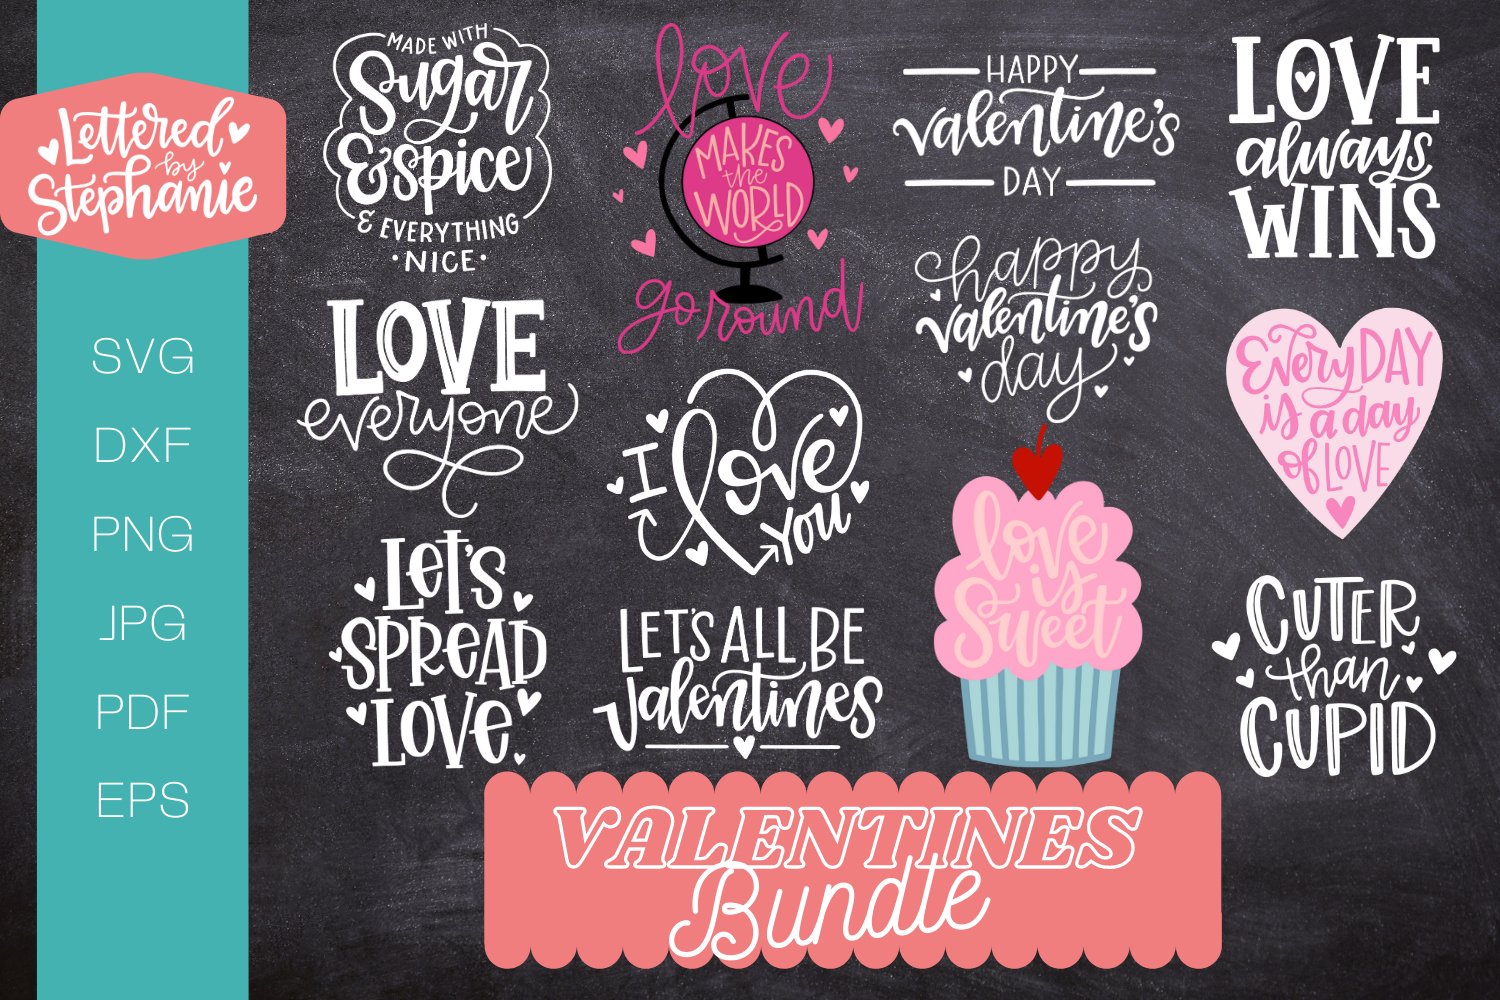 Lettered
by
Stephanie
SVG
DXF
PNG
JPG
PDF
EPS
MADE WITH
Sugar
& spice
& EVERYTHING
• NICE •
LOVE
everyone
LET'S
SPREAD
LOVE.
love
MAKES
the
WORLD
go round
I love
you
LET'S ALL BE
Valentines
HAPPY
valentine's
DAY
happy
valentine's
day
love
is
Sweet
LOVE
always
WINS
EVERY DAY
is a day
of LOVE
CUTER
than
CUPID
VALENTINES
Bundle